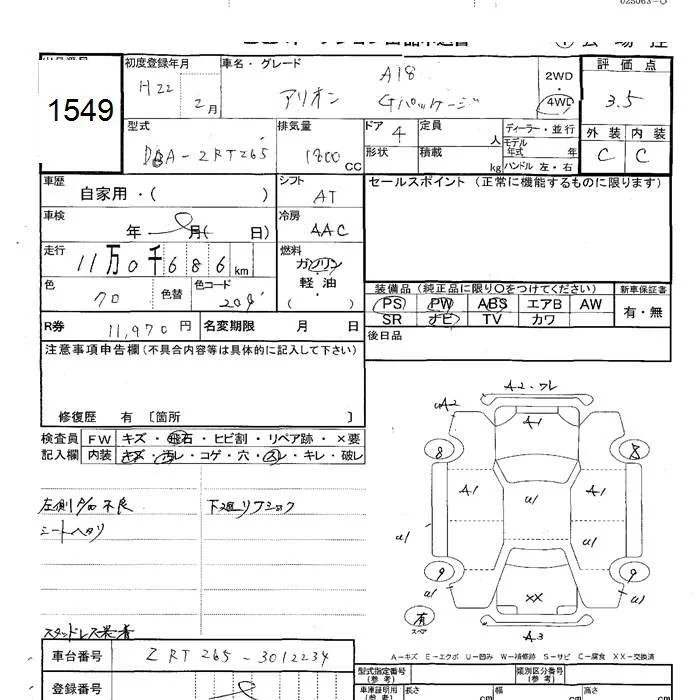 02S063-O
1549
初度登録年月
H22 2月
車名・グレード
A18
アリオン Gパッケージ
2WD
4WD
評価点
3.5
外装 内装
C C
型式
DBA-ZRT265
排気量
1800 CC
ドア 4
形状
定員 人
積載 kg
ディーラー・並行
モデル年式 年
ハンドル 左・右
車歴
自家用・( )
シフト
AT
車検
年 月( 日)
冷房
AAC
走行
11万0千686km
燃料
ガソリン
軽油
( )
色
色替
色コード
セールスポイント(正常に機能するものに限ります)
装備品(純正品に限り○をつけてください)
PS PW ABS エアB AW
SR ナビ TV カワ
新車保証書
有・無
R券 11,970円
名変期限 月 日
後日品
注意事項申告欄(不具合内容等は具体的に記入して下さい)
修復歴 有 〔箇所 〕
検査員記入欄
FW キズ・飛石・ヒビ割・リペア跡・×要
内装 キズ・汚レ・コゲ・穴・スレ・キレ・破レ
左側 不良
シートヘタリ
スタッドレス装着
A-2
A-1
8 8
A-1 U1 A-1
U1 U1
9 9
U1 XX U1
有
スペア
A-3
A-キズ E-エクボ U-凹み W-補修跡 S-サビ C-腐食 XX-交換済
車台番号 ZRT265-3012234
登録番号
型式指定番号(参考)
類別区分番号(参考)
車庫証明用(参考)
長さ cm 幅 cm 高さ cm